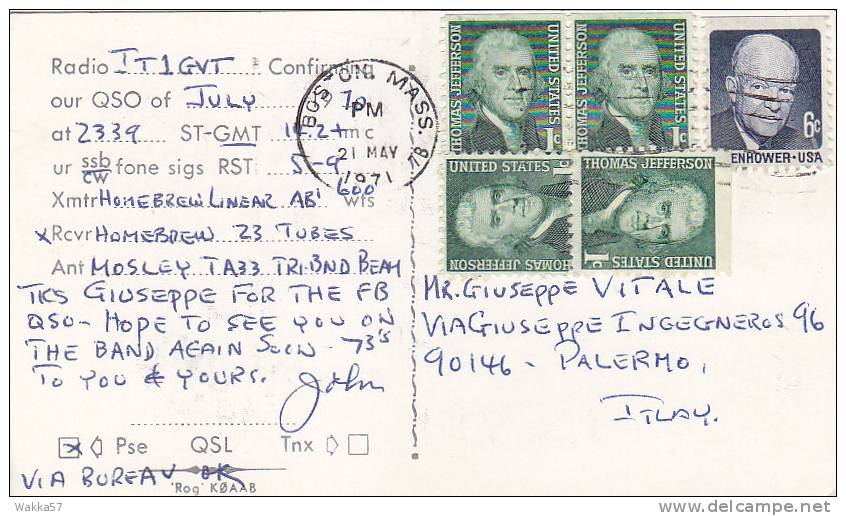 Radio IT1GVT Confirming
our QSO of JULY 70
at 2339 ST-GMT 14.2 mc
ur ssb/cw fone sigs RST 5-9
Xmtr HOMEBREW LINEAR AB' 600 wts
x Rcvr HOMEBREW 23 TUBES
Ant MOSLEY TA33 TRI.BND BEAM
TKS GIUSEPPE FOR THE FB
QSO - HOPE TO SEE YOU ON
THE BAND AGAIN SOON - 73'S
TO YOU & YOURS.
John
x Pse QSL Tnx
VIA BUREAU OK
'Rog' KØAAB
BOSTON, MASS
PM
21 MAY
1971
THOMAS JEFFERSON
UNITED STATES
1c
THOMAS JEFFERSON
UNITED STATES
1c
6c
ENHOWER · USA
UNITED STATES
1c
THOMAS JEFFERSON
THOMAS JEFFERSON
1c
UNITED STATES
MR. GIUSEPPE VITALE
VIA GIUSEPPE INGEGNEROS 96
90146 - PALERMO,
ITLAY.
Wakka57
delcampe.net